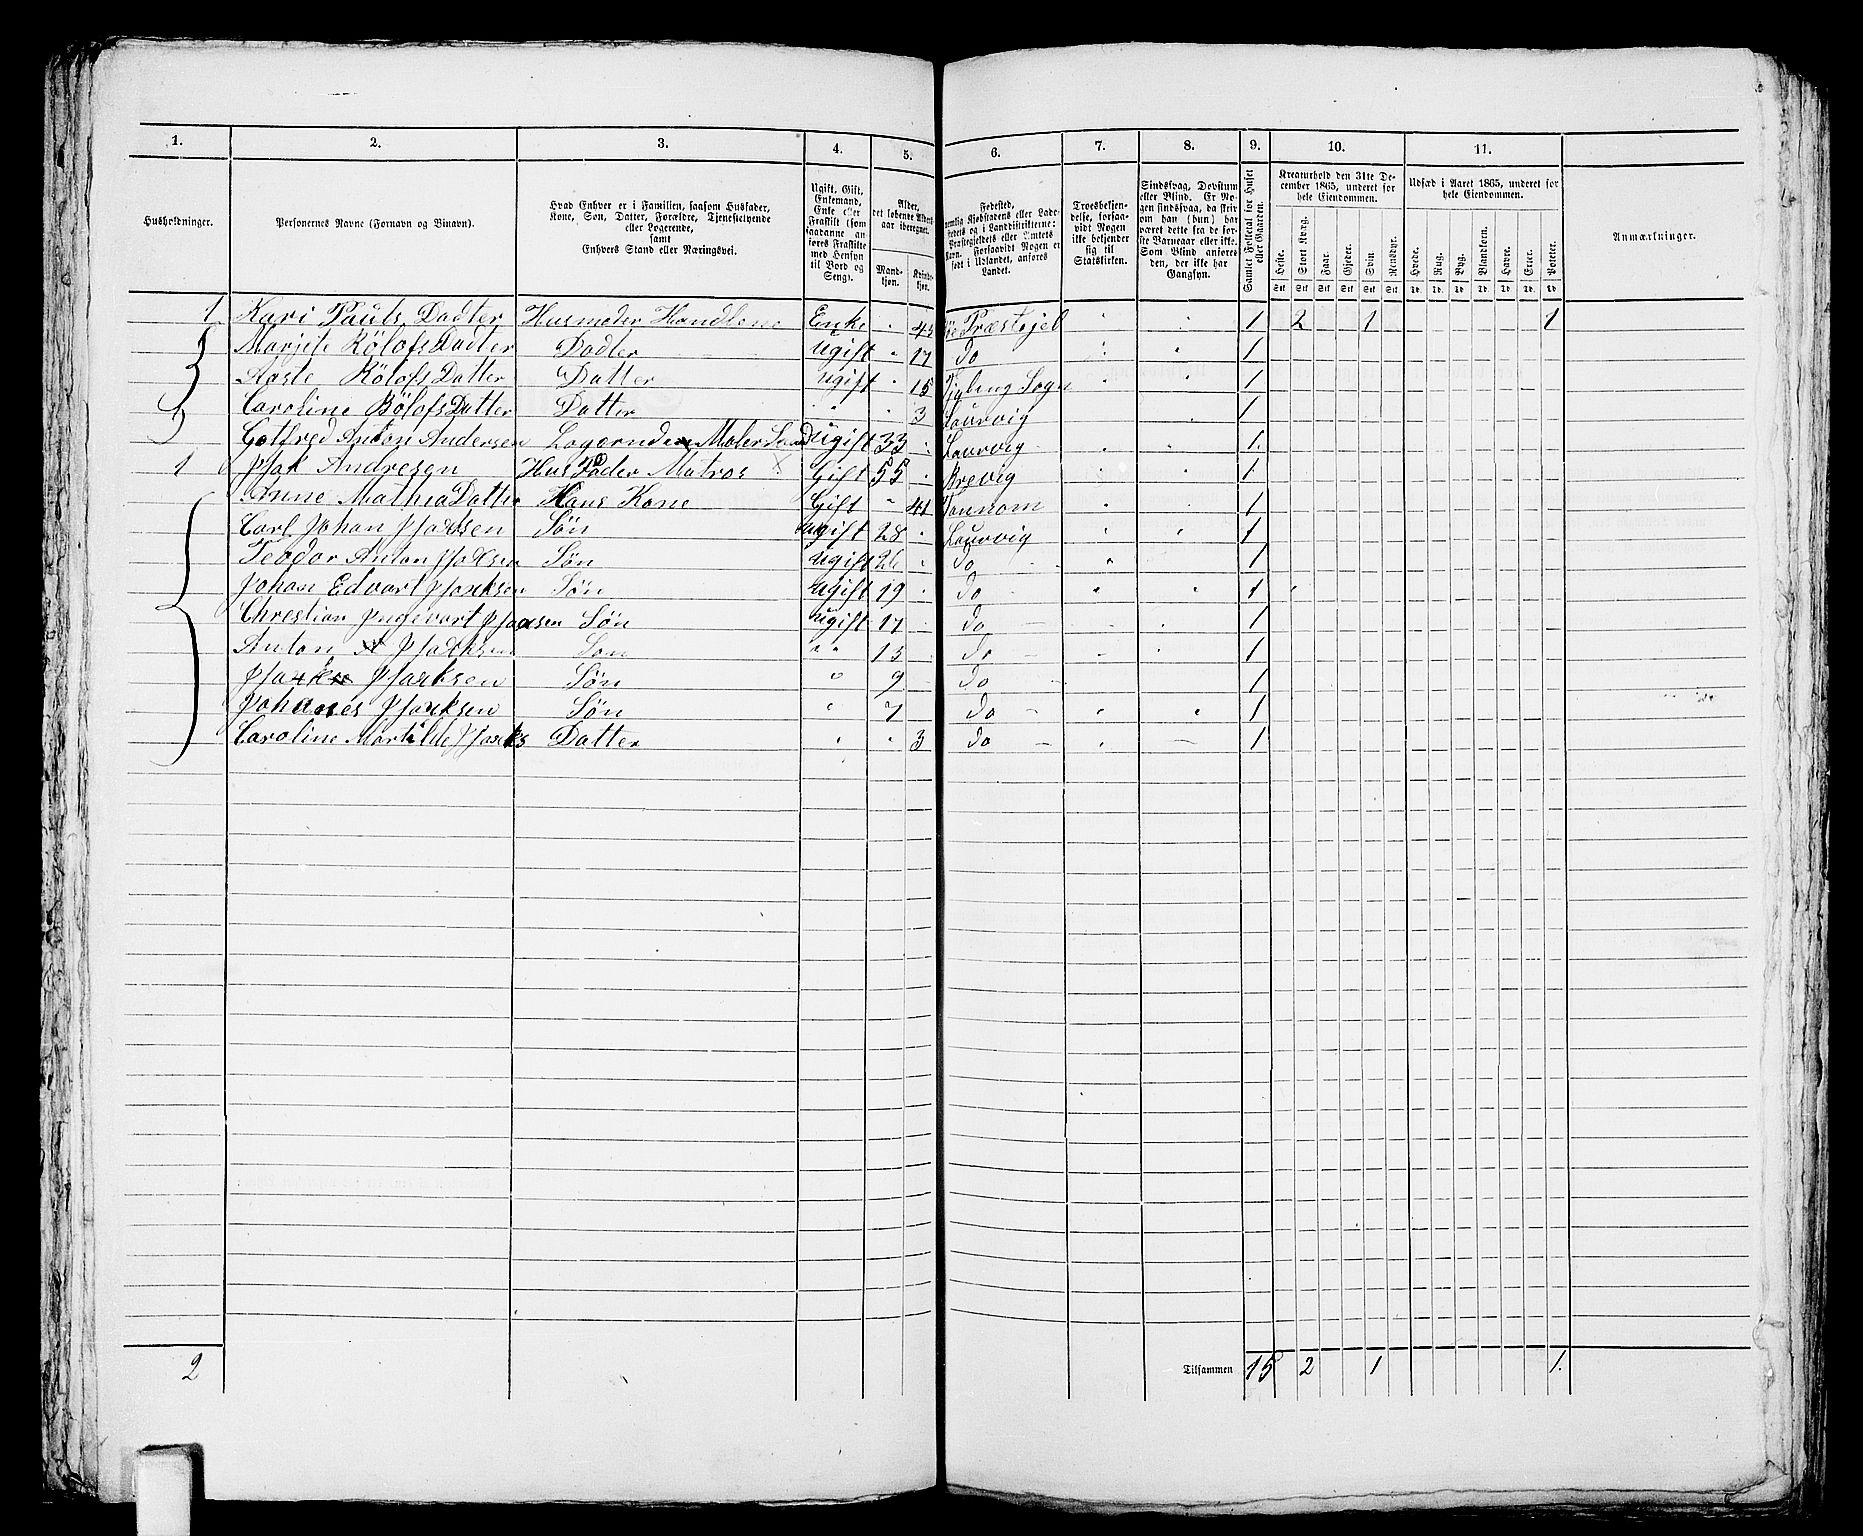 1. 2. 3. 4. 5. 6. 7. 8. 9. 10. 11.
Husholdninger.
Personernes Navne (Fornavn og Binavn).
Hvad Enhver er i Familien, saasom Husfader,
Kone, Søn, Datter, Forældre, Tjenestetyende
eller Logerende,
samt
Enhvers Stand eller Næringsvei.
Ugift, Gift,
Enkemand,
Enke eller
Fraskilt (som
saadanne an-
føres Fraskilte
med Hensyn
til Bord og
Seng).
Alder,
det løbende Alders-
aar iberegnet.
Mand-
kjøn.
Kvinde-
kjøn.
Fødested,
nemlig Kjøbstadens eller Lade-
stedets og i Landdistrikterne:
Præstegjeldets eller Amtets
Navn. Forsaavidt Nogen er
født i Udlandet, anføres
Landet.
Troesbekjen-
delse, forsaa-
vidt Nogen
ikke bekjender
sig til
Statskirken.
Sindssvag, Døvstum
eller Blind. Er No-
gen sindssvag, da skriv
om han (hun) har
været dette fra de før-
ste Barneaar eller ikke.
Som Blind anføres
den, der ikke har
Gangsyn.
Samlet Folketal for Huset
eller Gaarden.
Kreaturhold den 31te De-
cember 1865, underet for
hele Eiendommen.
Heste. Stort Kvæg. Faar. Gjeder. Sviin. Rensdyr.
Stk Stk Stk Stk Stk Stk
Udsæd i Aaret 1865, underet for
hele Eiendommen.
Hvede. Rug. Byg. Blandkorn. Havre. Erter. Poteter.
Td. Td. Td. Td. Td. Td. Td
Anmærkninger.
1 Kari Pauls Dadter Husmoder Handlene Enke " 43 Præstejel 1 2 1 1
Marjite Rölofs Dadter Dadter Ugift " 17 do 1
Aaste Rölofs Datter Datter Ugift " 15 Sogn 1
Caroline Rölofs Datter Datter " " 3 Laurvig 1
Gotfred Anton Andersen Logerende Ugift 33 Laurvig 1
1 Isak Andresen Hus Fader Matros X Gift 55 Brevig 1
Anne Mathea Datter Hans Kone Gift " 41 1
Carl Johan Isaksen Søn Ugift 28 Laurvig 1
Teodor Anton Isaksen Søn Ugift 26 do 1
Johan Edvart Isaksen Søn Ugift 19 do 1
Chrestian Ingevart Isaksen Søn Ugift 17 do 1
Anton Isacksen Son " " 13 do 1
Isak Isaksen Søn " 9 do 1
Johanes Isaksen Søn " 7 do 1
Caroline Martilde Isaks Datter " " 3 do 1
2 Tilsammen 15 2 1 1.